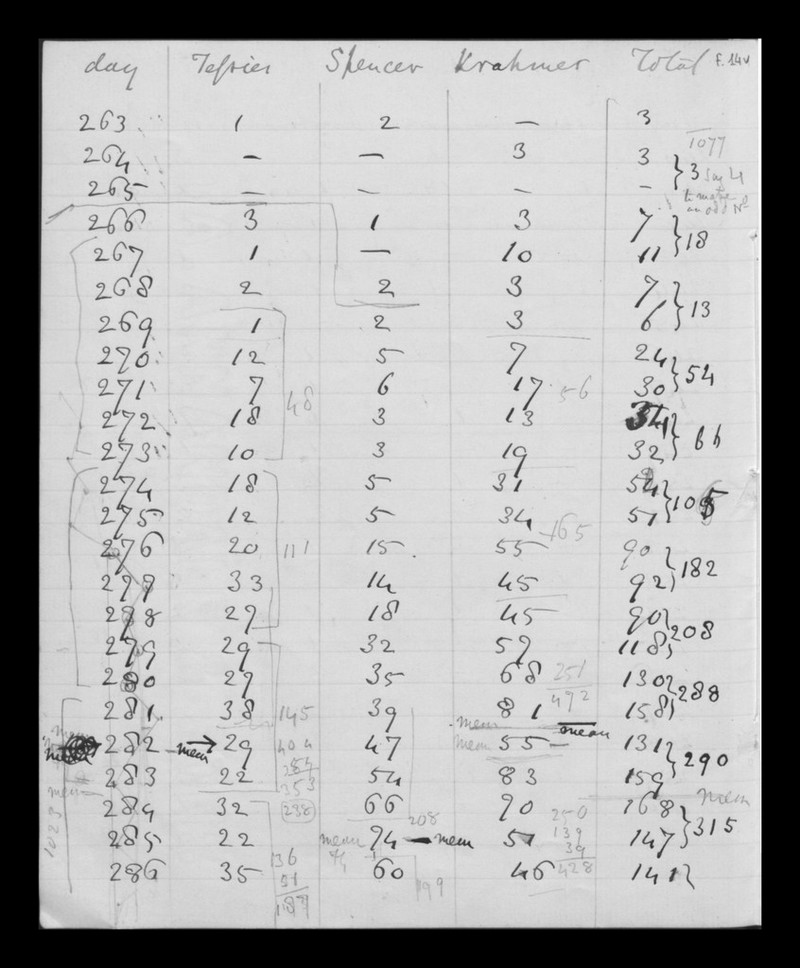 day Tessier Spencer Krahmer Total F. 14v
263 1 2 — 3
1077
264 — — 3 3
} 3 Say 4
265 — — — —
to make an odd No
266 3 1 3 7
} 18
267 1 — 10 11
268 2 2 3 7
} 13
269 1 2 3 6
270 12 5 7 24
} 54
271 7 6 17 30
48 56
272 18 3 13 34
} 66
273 10 3 19 32
274 18 5 31 54
} 105
275 12 5 34 51
165
276 20 15 55 90
111
} 182
277 33 14 45 92
278 27 18 45 90
} 208
279 29 32 57 118
280 27 35 68 130
251
} 288
492
281 38 39 81 158
145
mean mean
282 mean 29 47 mean 55 — mean 131
404
} 290
254
283 22 54 83 159
353
mean mean
284 32 66 90 168
238 208 250
} 315
285 22 mean 74 mean 51 147
139
39
1023
286 35 60 46 141
136 428
51 199
187